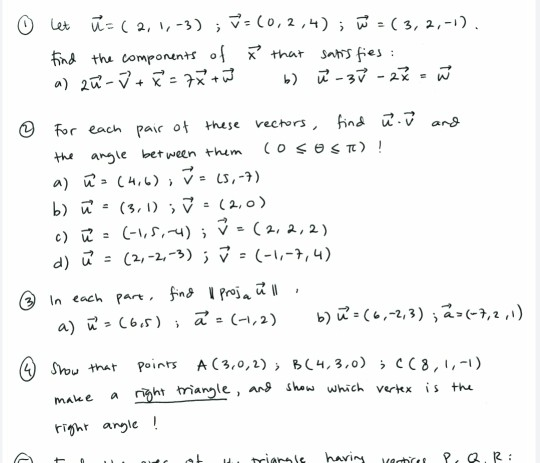 ① Let u⃗ = (2, 1, -3) ; v⃗ = (0, 2, 4) ; w⃗ = (3, 2, -1).
Find the components of x⃗ that satisfies :
a) 2u⃗ - v⃗ + x⃗ = 7x⃗ + w⃗ b) u⃗ - 3v⃗ - 2x⃗ = w⃗
② For each pair of these vectors, find u⃗ . v⃗ and
the angle between them (0 ≤ θ ≤ π) !
a) u⃗ = (4,6) ; v⃗ = (5,-7)
b) u⃗ = (3, 1) ; v⃗ = (2,0)
c) u⃗ = (-1, 5, -4) ; v⃗ = (2, 2, 2)
d) u⃗ = (2, -2, -3) ; v⃗ = (-1, -7, 4)
③ In each part, find || proj_a u⃗ || ,
a) u⃗ = (6,5) ; a⃗ = (-1, 2) b) u⃗ = (6, -2, 3) ; a⃗ = (-7, 2, 1)
④ Show that points A(3, 0, 2) ; B(4, 3, 0) ; C(8, 1, -1)
make a right triangle, and show which vertex is the
right angle !
triangle having vertices P, Q, R :